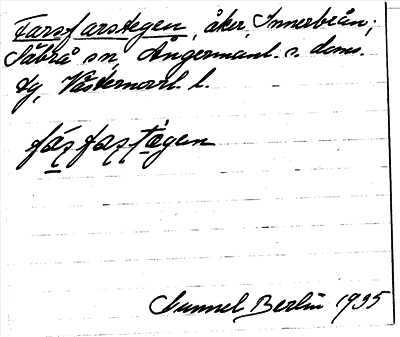 Farsfarstegen, åker, Innerbeån;
Säbrå sn, Ångermanl. s. doms.
tg, Västernorrl. l.
Gunnel Berlin 1935